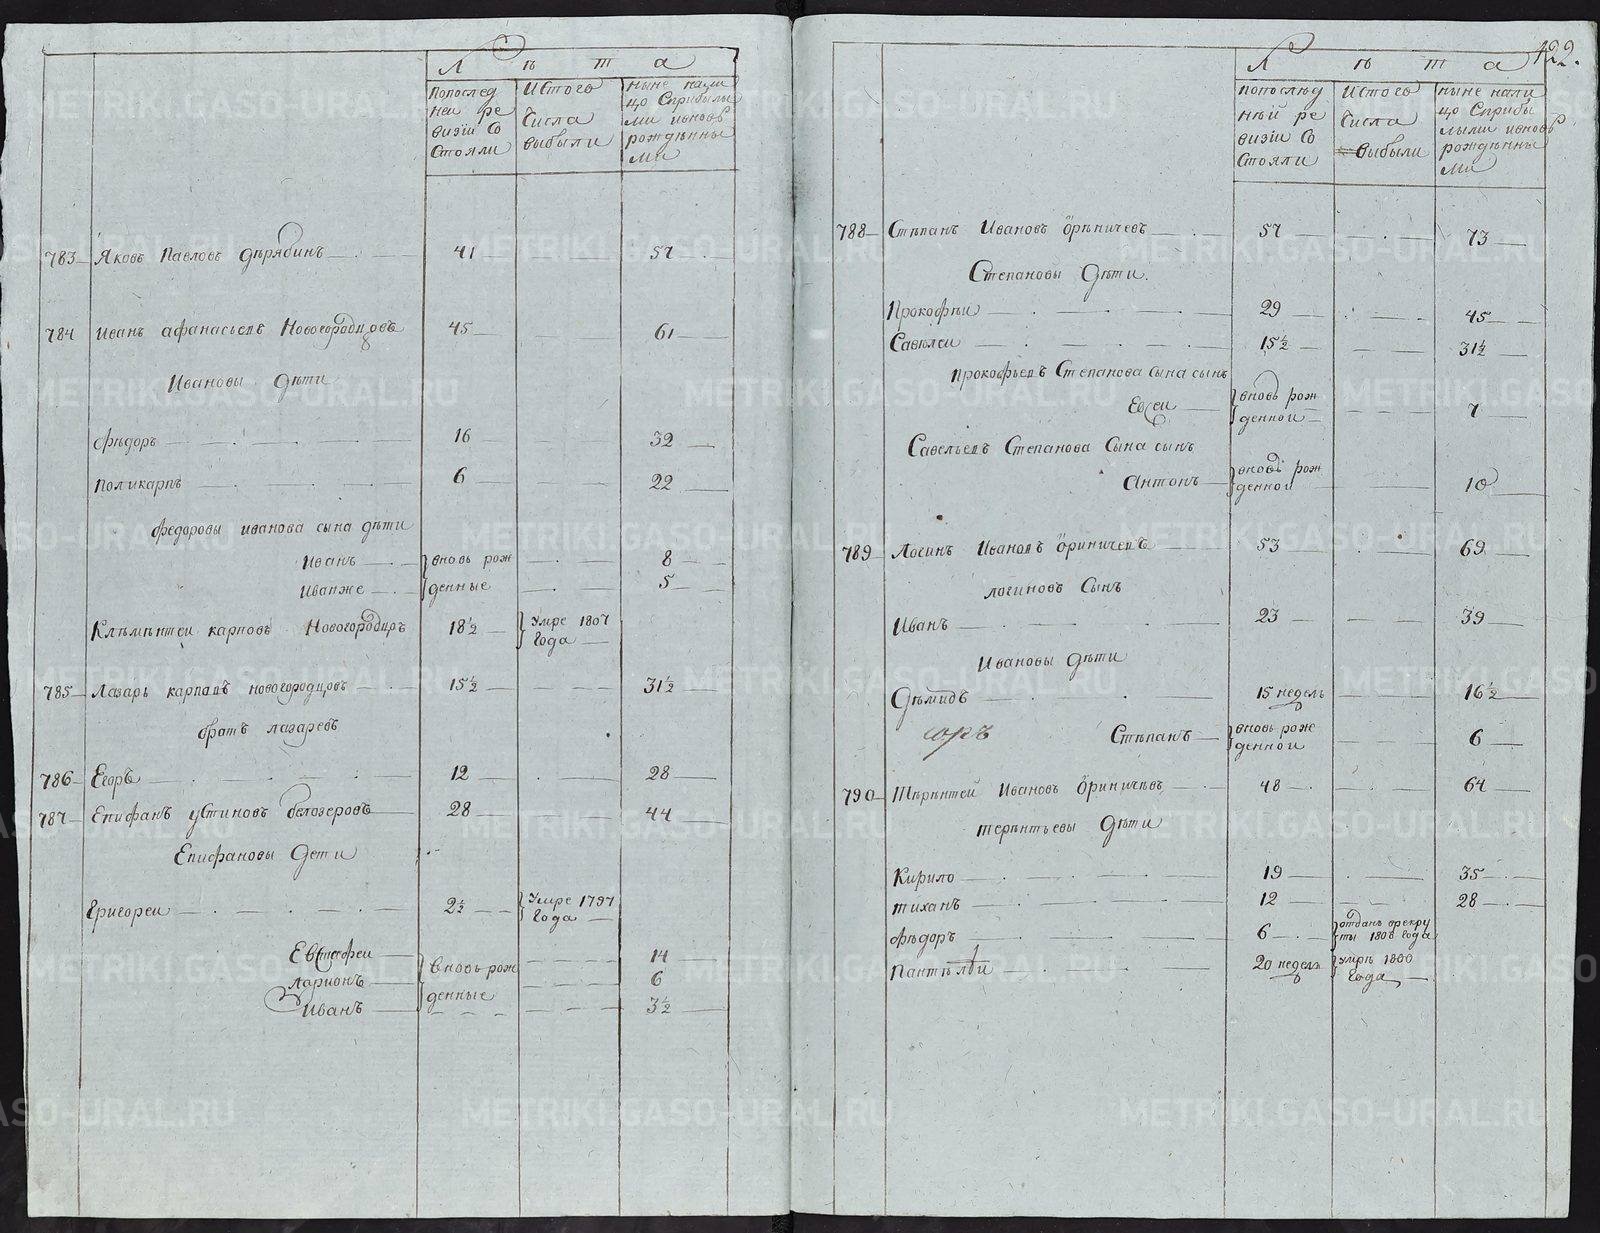 Лѣта
Попослед
ней ре
визiи со
стояли
Истого
числа
выбыли
ныне нали
цо сприбылы
ми ивновь
рожденны
ми
783 Яковъ Павловъ дѣрябинъ 41 57
784 Иванъ афанасьевъ Новогородцовъ 45 61
Ивановы дѣти
фѣдоръ 16 32
поликарпъ 6 22
федоровы иванова сына дѣти
Иванъ вновь рож 8
Иванже денные 5
Клѣмѣнтеи карповъ Новогородцовъ 18½ Умре 1807
года
785 Лазарь карповъ новогородцовъ 15½ 31½
братъ лазаревъ
786 Егоръ 12 28
787 Епифанъ устиновъ белозеровъ 28 44
Епифановы дети
Григореи 2½ Умре 1797
года
Евстафеи 14
вновь рож
Ларионъ 6
денные
Иванъ 3½
122.
Лѣта
попослѣд
нѣй ре
визiи со
стояли
Истого
числа
выбыли
ныне нали
цо сприбы
лыми ивновь
рожденны
ми
788 Стѣпанъ Ивановъ Ѳрѣничевъ 57 73
Степановы дѣти.
Прокофѣи 29 45
Савелеи 15½ 31½
прокофьевъ Степанова сына сынъ
вновь рож
Евсеи денной 7
Савельевъ Степанова Сына сынъ
вновь рож
Антонъ денной 10
789 Логинъ Ивановъ Ѳриничевъ 53 69
логиновъ Сынъ
Иванъ 23 39
Ивановы дѣти
Дѣмидъ 15 недель 16½
вновь рож
Стѣпанъ денной 6
790 Тѣрѣнтей Ивановъ Ѳриничѣвъ 48 64
терѣнтьевы дѣти
Кирило 19 35
тиханъ 12 28
отданъ врекру
фѣдоръ 6 ты 1808 года
Пантѣлѣи 20 недель умрѣ 1800
года